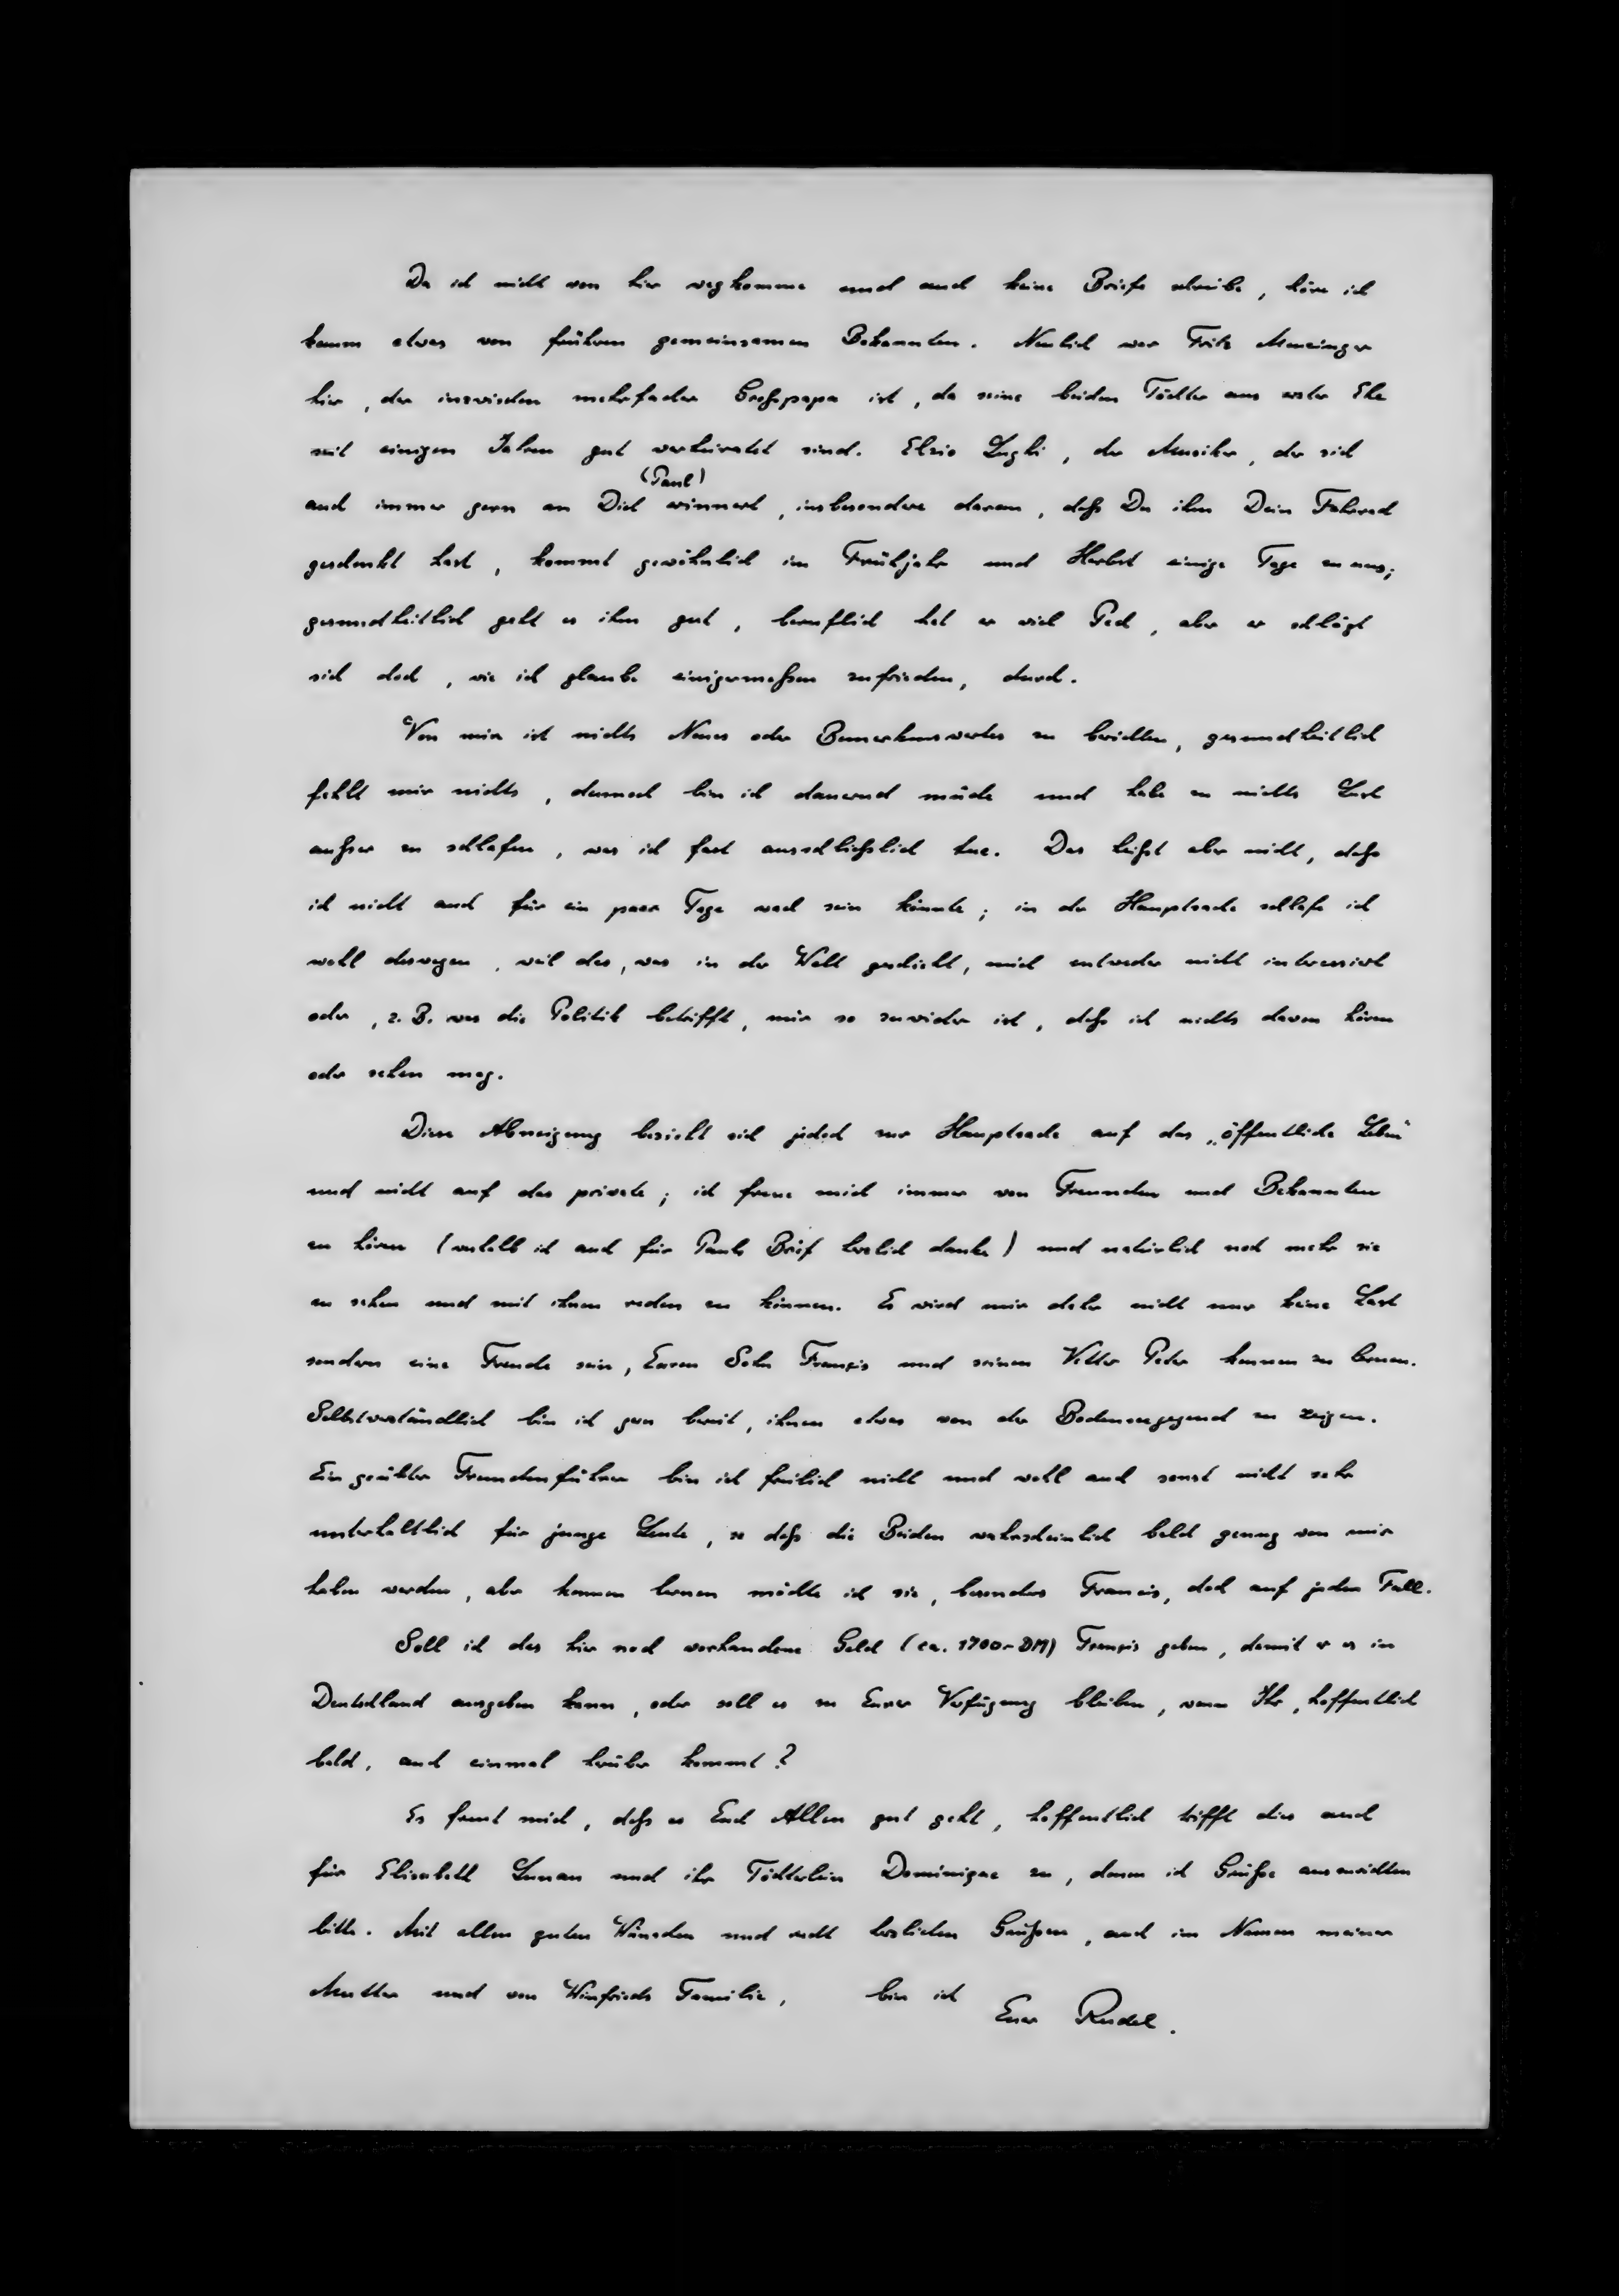 Da ich nicht von hier wegkomme und auch keine Briefe schreibe, höre ich
kaum etwas von früheren gemeinsamen Bekannten. Neulich war Fritz
hier, der inzwischen mehrfacher Großpapa ist, da seine beiden Töchter aus erster Ehe
seit einigen Jahren gut verheiratet sind. Elzio Lughi, der Musiker, der sich
(Paul)
auch immer gern an Dich erinnert, insbesondere daran, daß Du ihm Dein Fahrrad
geschenkt hast, kommt gewöhnlich im Frühjahr und Herbst einige Tage zu uns;
gesundheitlich geht es ihm gut, beruflich hat er viel Pech, aber er schlägt
sich doch, wie ich glaube einigermaßen zufrieden, durch.
Von mir ist nichts Neues oder Bemerkenswertes zu berichten, gesundheitlich
fehlt mir nichts, dennoch bin ich dauernd müde und habe zu nichts Lust
außer zu schlafen, was ich fast ausschließlich tue. Das heißt aber nicht, daß
ich nicht auch für ein paar Tage wach sein könnte; in der Hauptsache schlafe ich
wohl deswegen, weil das, was in der Welt geschieht, mich entweder nicht interessiert
oder, z. B. was die Politik betrifft, mir so zuwider ist, daß ich nichts davon hören
oder sehen mag.
Diese Abneigung bezieht sich jedoch zur Hauptsache auf das „öffentliche Leben"
und nicht auf das private; ich freue mich immer von Freunden und Bekannten
zu hören (weshalb ich auch für Pauls Brief herzlich danke) und natürlich noch mehr sie
zu sehen und mit ihnen reden zu können. Es wird mir daher nicht nur keine Last
sondern eine Freude sein, Euren Sohn Françis und seinen Vetter Peter kennen zu lernen.
Selbstverständlich bin ich gern bereit, ihnen etwas von der Bodenseegegend zu zeigen.
Ein geübter Fremdenführer bin ich freilich nicht und wohl auch sonst nicht sehr
unterhaltlich für junge Leute, so daß die Beiden wahrscheinlich bald genug von mir
haben werden, aber kennen lernen möchte ich sie, besonders Francis, doch auf jeden Fall.
Soll ich das hier noch vorhandene Geld (ca. 1700.- DM) Françis geben, damit er es in
Deutschland ausgeben kann, oder soll es zu Eurer Verfügung bleiben, wenn Ihr, hoffentlich
bald, auch einmal herüber kommt?
Es freut mich, daß es Euch Allen gut geht, hoffentlich trifft dies auch
für Elisabeth Lunau und ihr Töchterlein Dominique zu, denen ich Grüße auszurichten
bitte. Mit allen guten Wünschen und recht herzlichen Grüßen, auch im Namen meiner
Mutter und von Winfrieds Familie, bin ich
Euer Rudel.